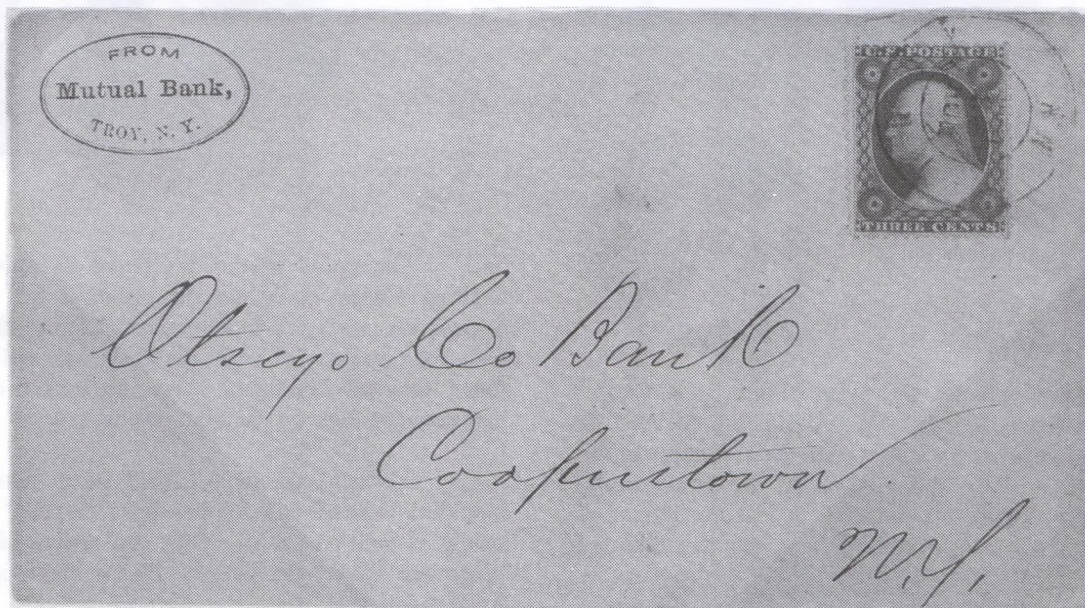 FROM
Mutual Bank,
TROY, N. Y.
U.S. POSTAGE
THREE CENTS
Otsego Co Bank
Cooperstown
N.Y.